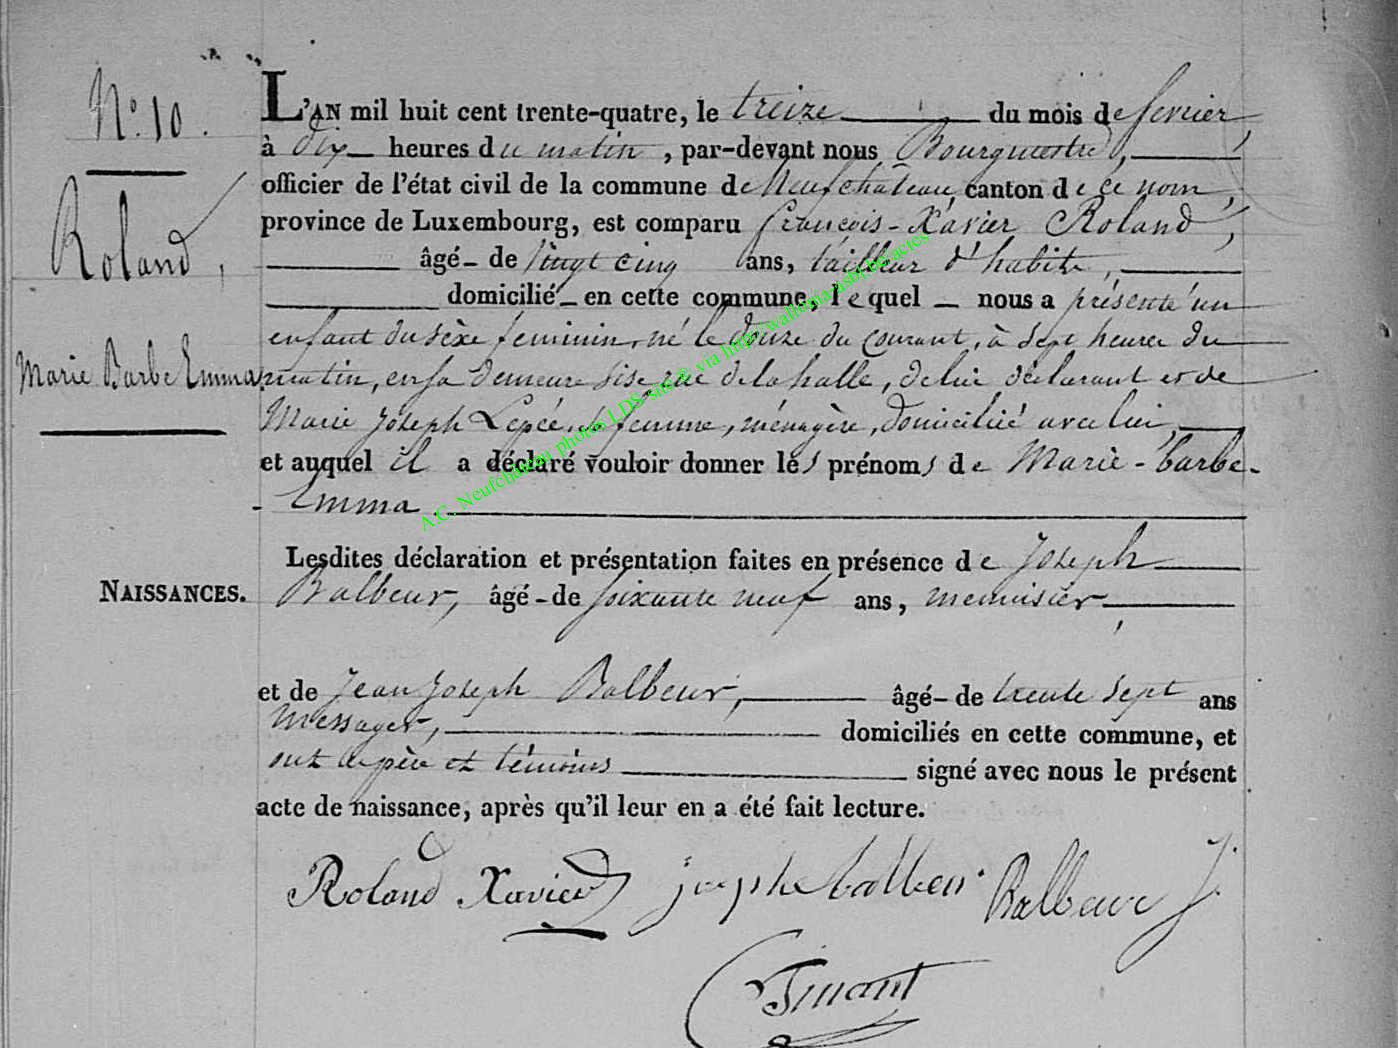 N.° 10.
Roland,
Marie Barbe Emma
NAISSANCES.
L'AN mil huit cent trente-quatre, le treize du mois de fevrier,
à dix heures du matin, par-devant nous Bourgmestre,
officier de l'état civil de la commune de Neufchâteau, canton de ce nom,
province de Luxembourg, est comparu François-Xavier Roland,
âgé de vingt cinq ans, tailleur d'habits,
domicilié en cette commune, lequel nous a présenté un
enfant du sèxe féminin, né le douze du courant, à sept heures du
matin, en sa demeure sise rue de la halle, de lui déclarant et de
Marie Joseph Lepée, sa femme, ménagère, domiciliée avec lui,
et auquel il a déclaré vouloir donner les prénoms de Marie-barbe-
-Emma.
Lesdites déclaration et présentation faites en présence de Joseph
Balbeur, âgé de soixante neuf ans, menuisier,
et de Jean Joseph Balbeur, âgé de trente sept ans
messager, domiciliés en cette commune, et
ont le père et témoins signé avec nous le présent
acte de naissance, après qu'il leur en a été fait lecture.
Roland Xavier joseph balbeur Balbeur J.
A.C. Neufchâteau photos LDS sur via http:/wallonia-asbl.be/actes